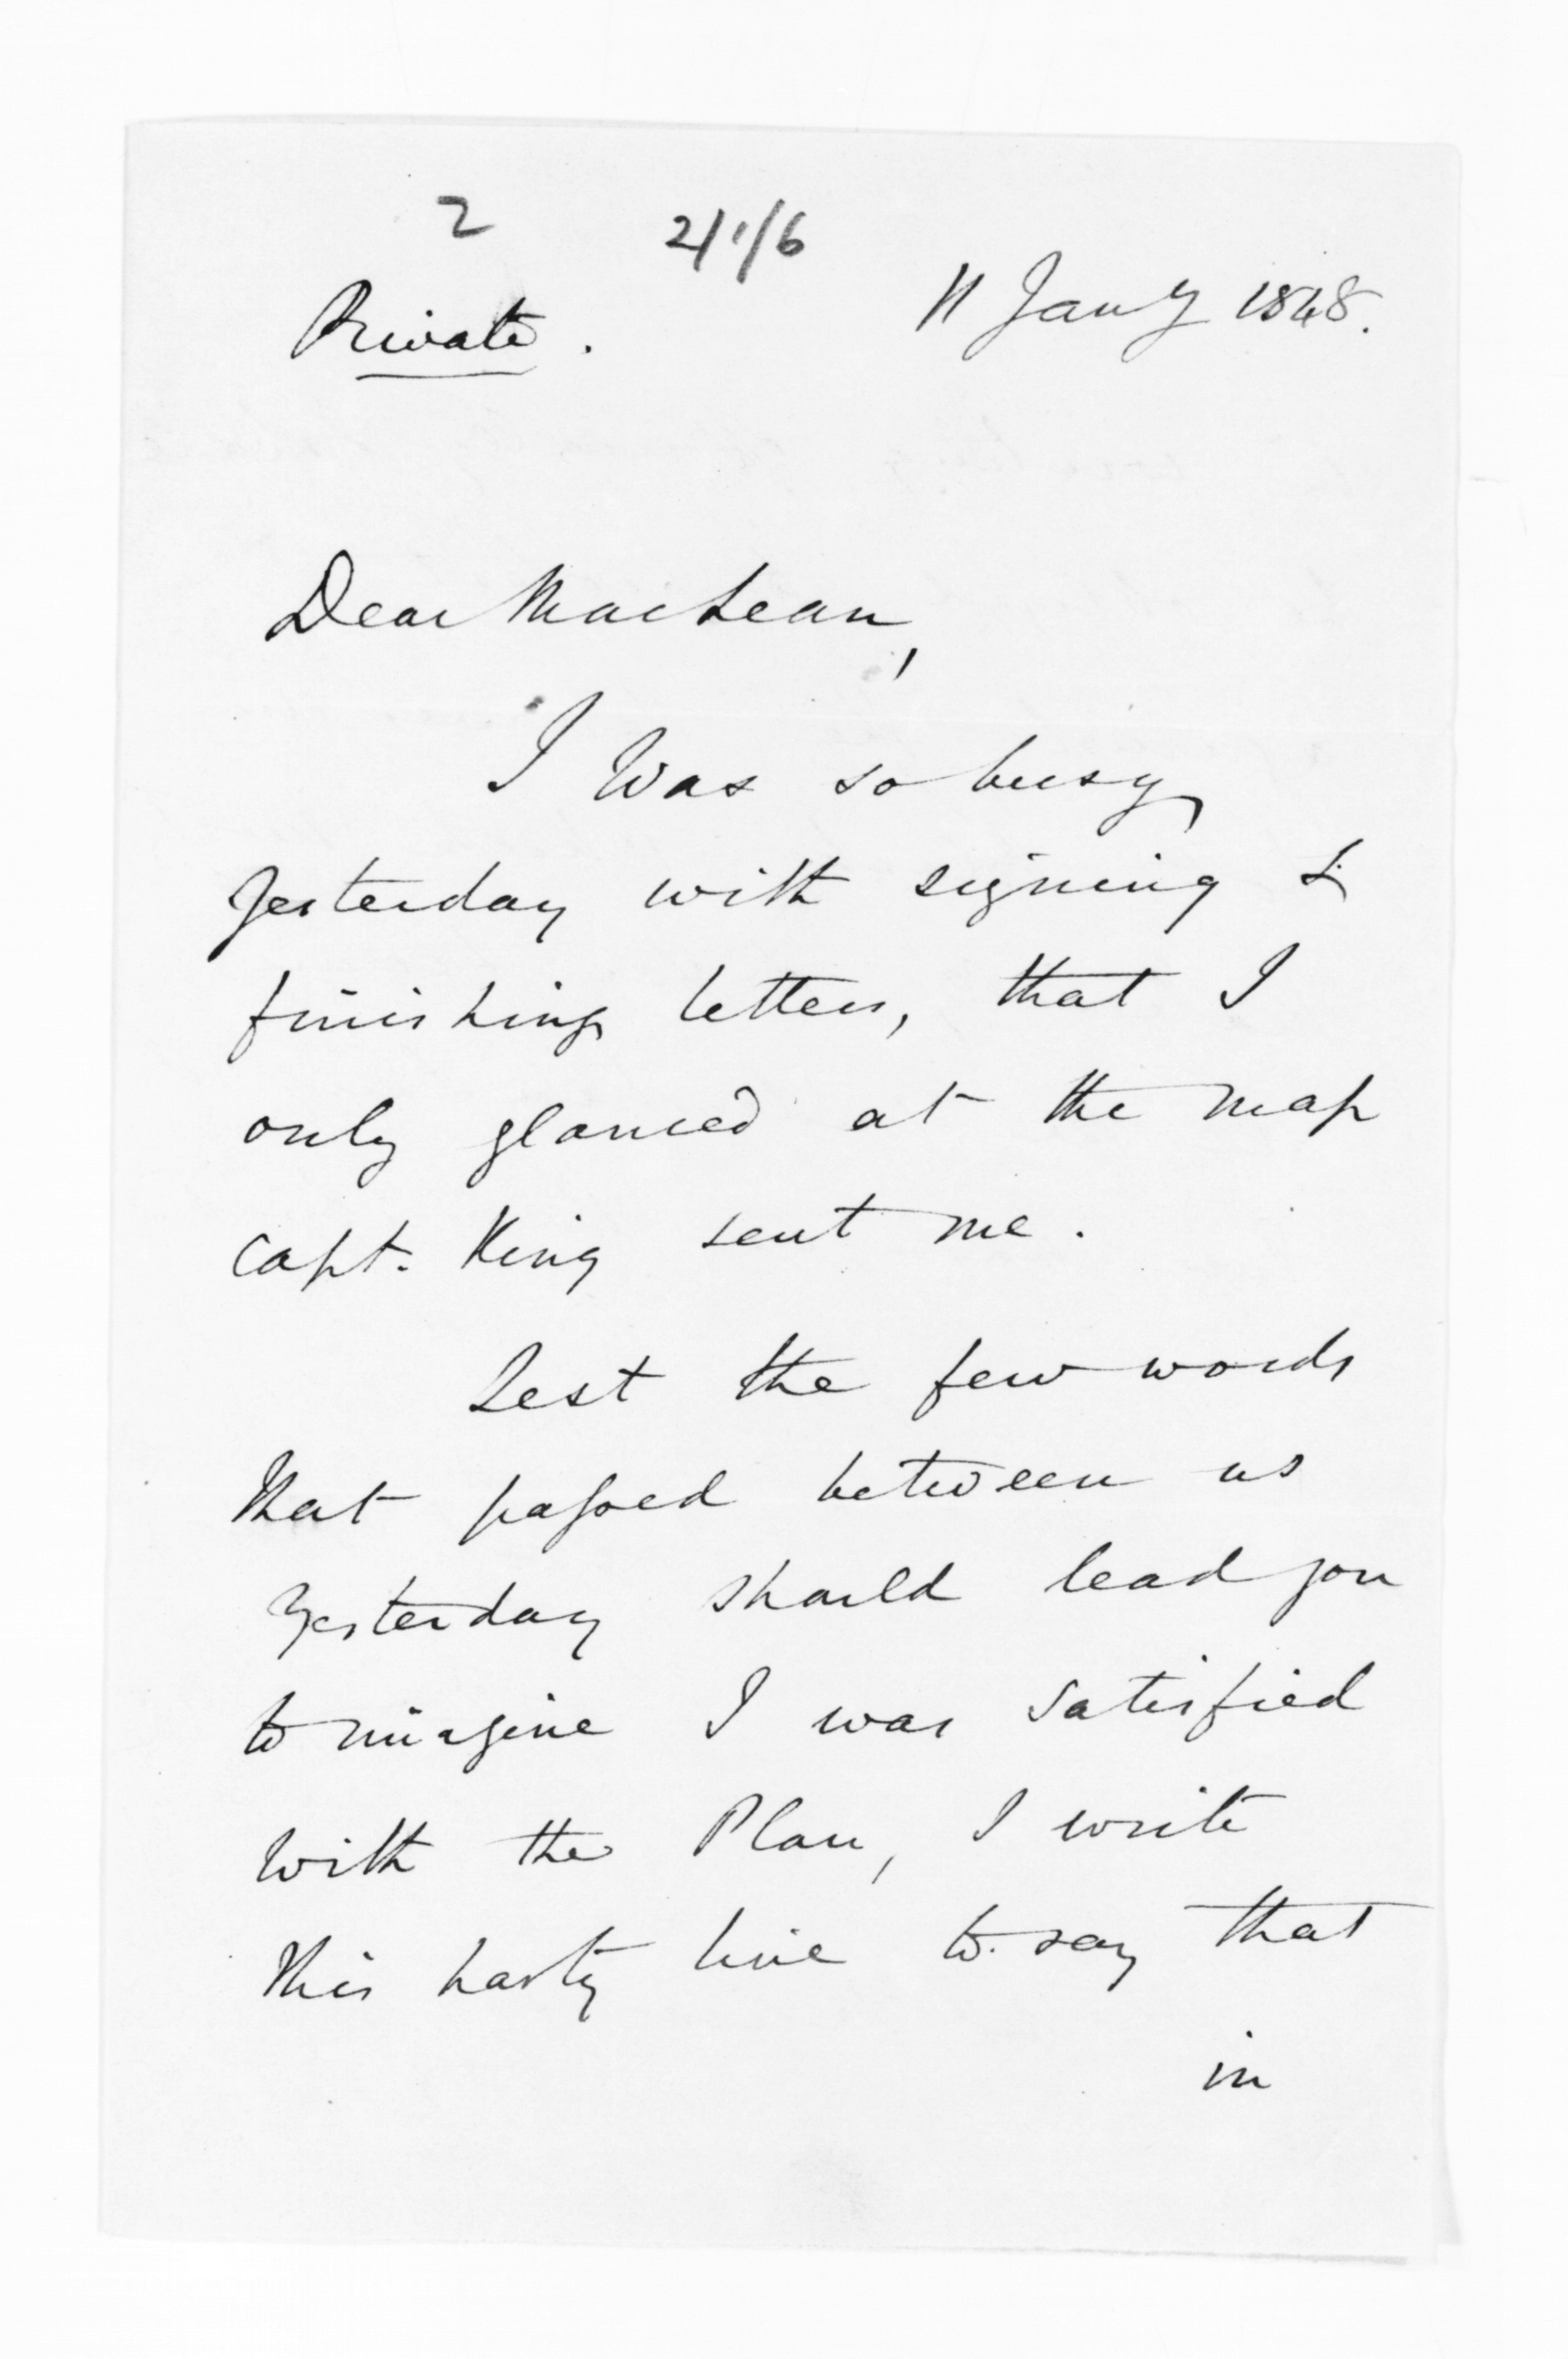 2 2/1/6
Private. 11 Jany 1848.
Dear MacLean,
I was so busy,
yesterday with signing &
finishing letters, that I
only glanced at the map
Capt. King sent me.
Lest the few words
that passed between us
yesterday should lead you
to imagine I was satisfied
with the Plan, I write
this hasty line to say that
in